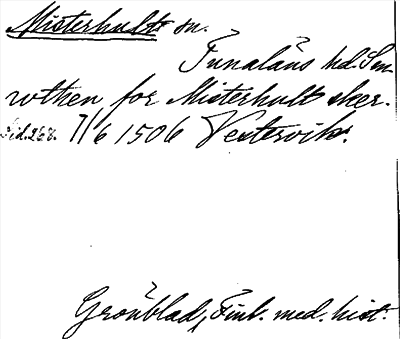 Misterhults sn.
Tunaläns hd. Sen
wthen för Misterhult sker.
Sid. 268. 7/6 1506 Vestervik.
Grönblad, Finl. med. hist.